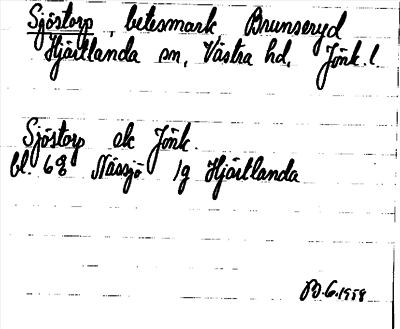 Sjöstorp, betesmark, Brunseryd
Hjärtlanda sn, Västra hd, Jönk. l.
Sjöstorp ek Jönk.
bl. 68 Nässjö 1g Hjärtlanda
B.G.1958